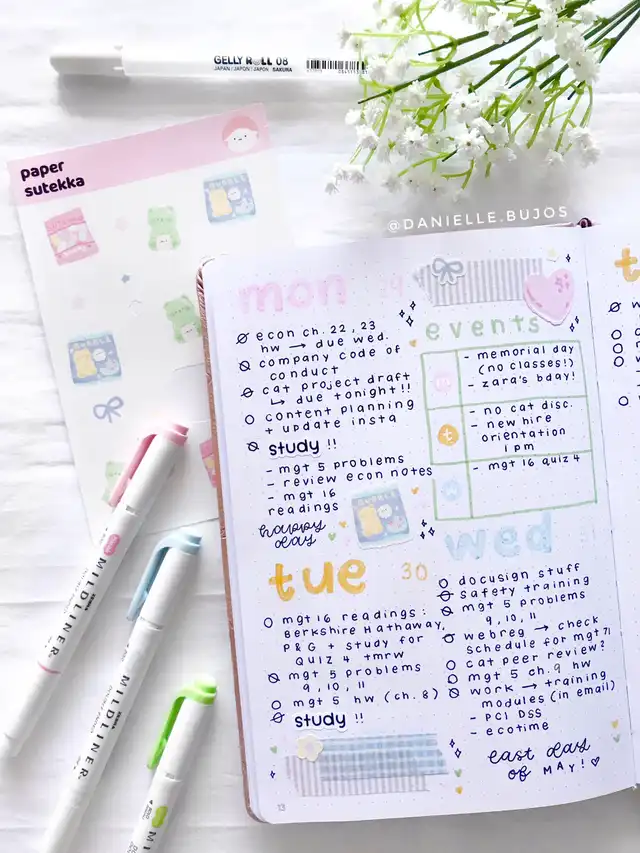 GELLY ROLL 08
JAPAN / JAPON / JAPÓN SAKURA
paper
sutekka
@DANIELLE.BUJOS
mon 29
econ ch. 22, 23
hw → due wed.
company code of
conduct
cat project draft
↳ due tonight!!
content planning
+ update insta
study !!
- mgt 5 problems
- review econ notes
- mgt 16
readings
happy
day
events
m
- memorial day
(no classes!)
- zara's bday!
t
- no cat disc.
- new hire
orientation
1 pm
w
- mgt 16 quiz 4
tue 30
mgt 16 readings:
Berkshire Hathaway,
P&G + study for
QUIZ 4 tmrw
mgt 5 problems
9, 10, 11
mgt 5 hw (ch. 8)
study !!
wed 31
docusign stuff
safety training
mgt 5 problems
9, 10, 11
webreg → check
schedule for mgt 71
cat peer review?
mgt 5 ch. 9 hw
work → training
modules (in email)
- PCI DSS
- ecotime
last day
of MAY!
13
t
ZEBRA MILDLINER
ZEBRA MILDLINER
MILD